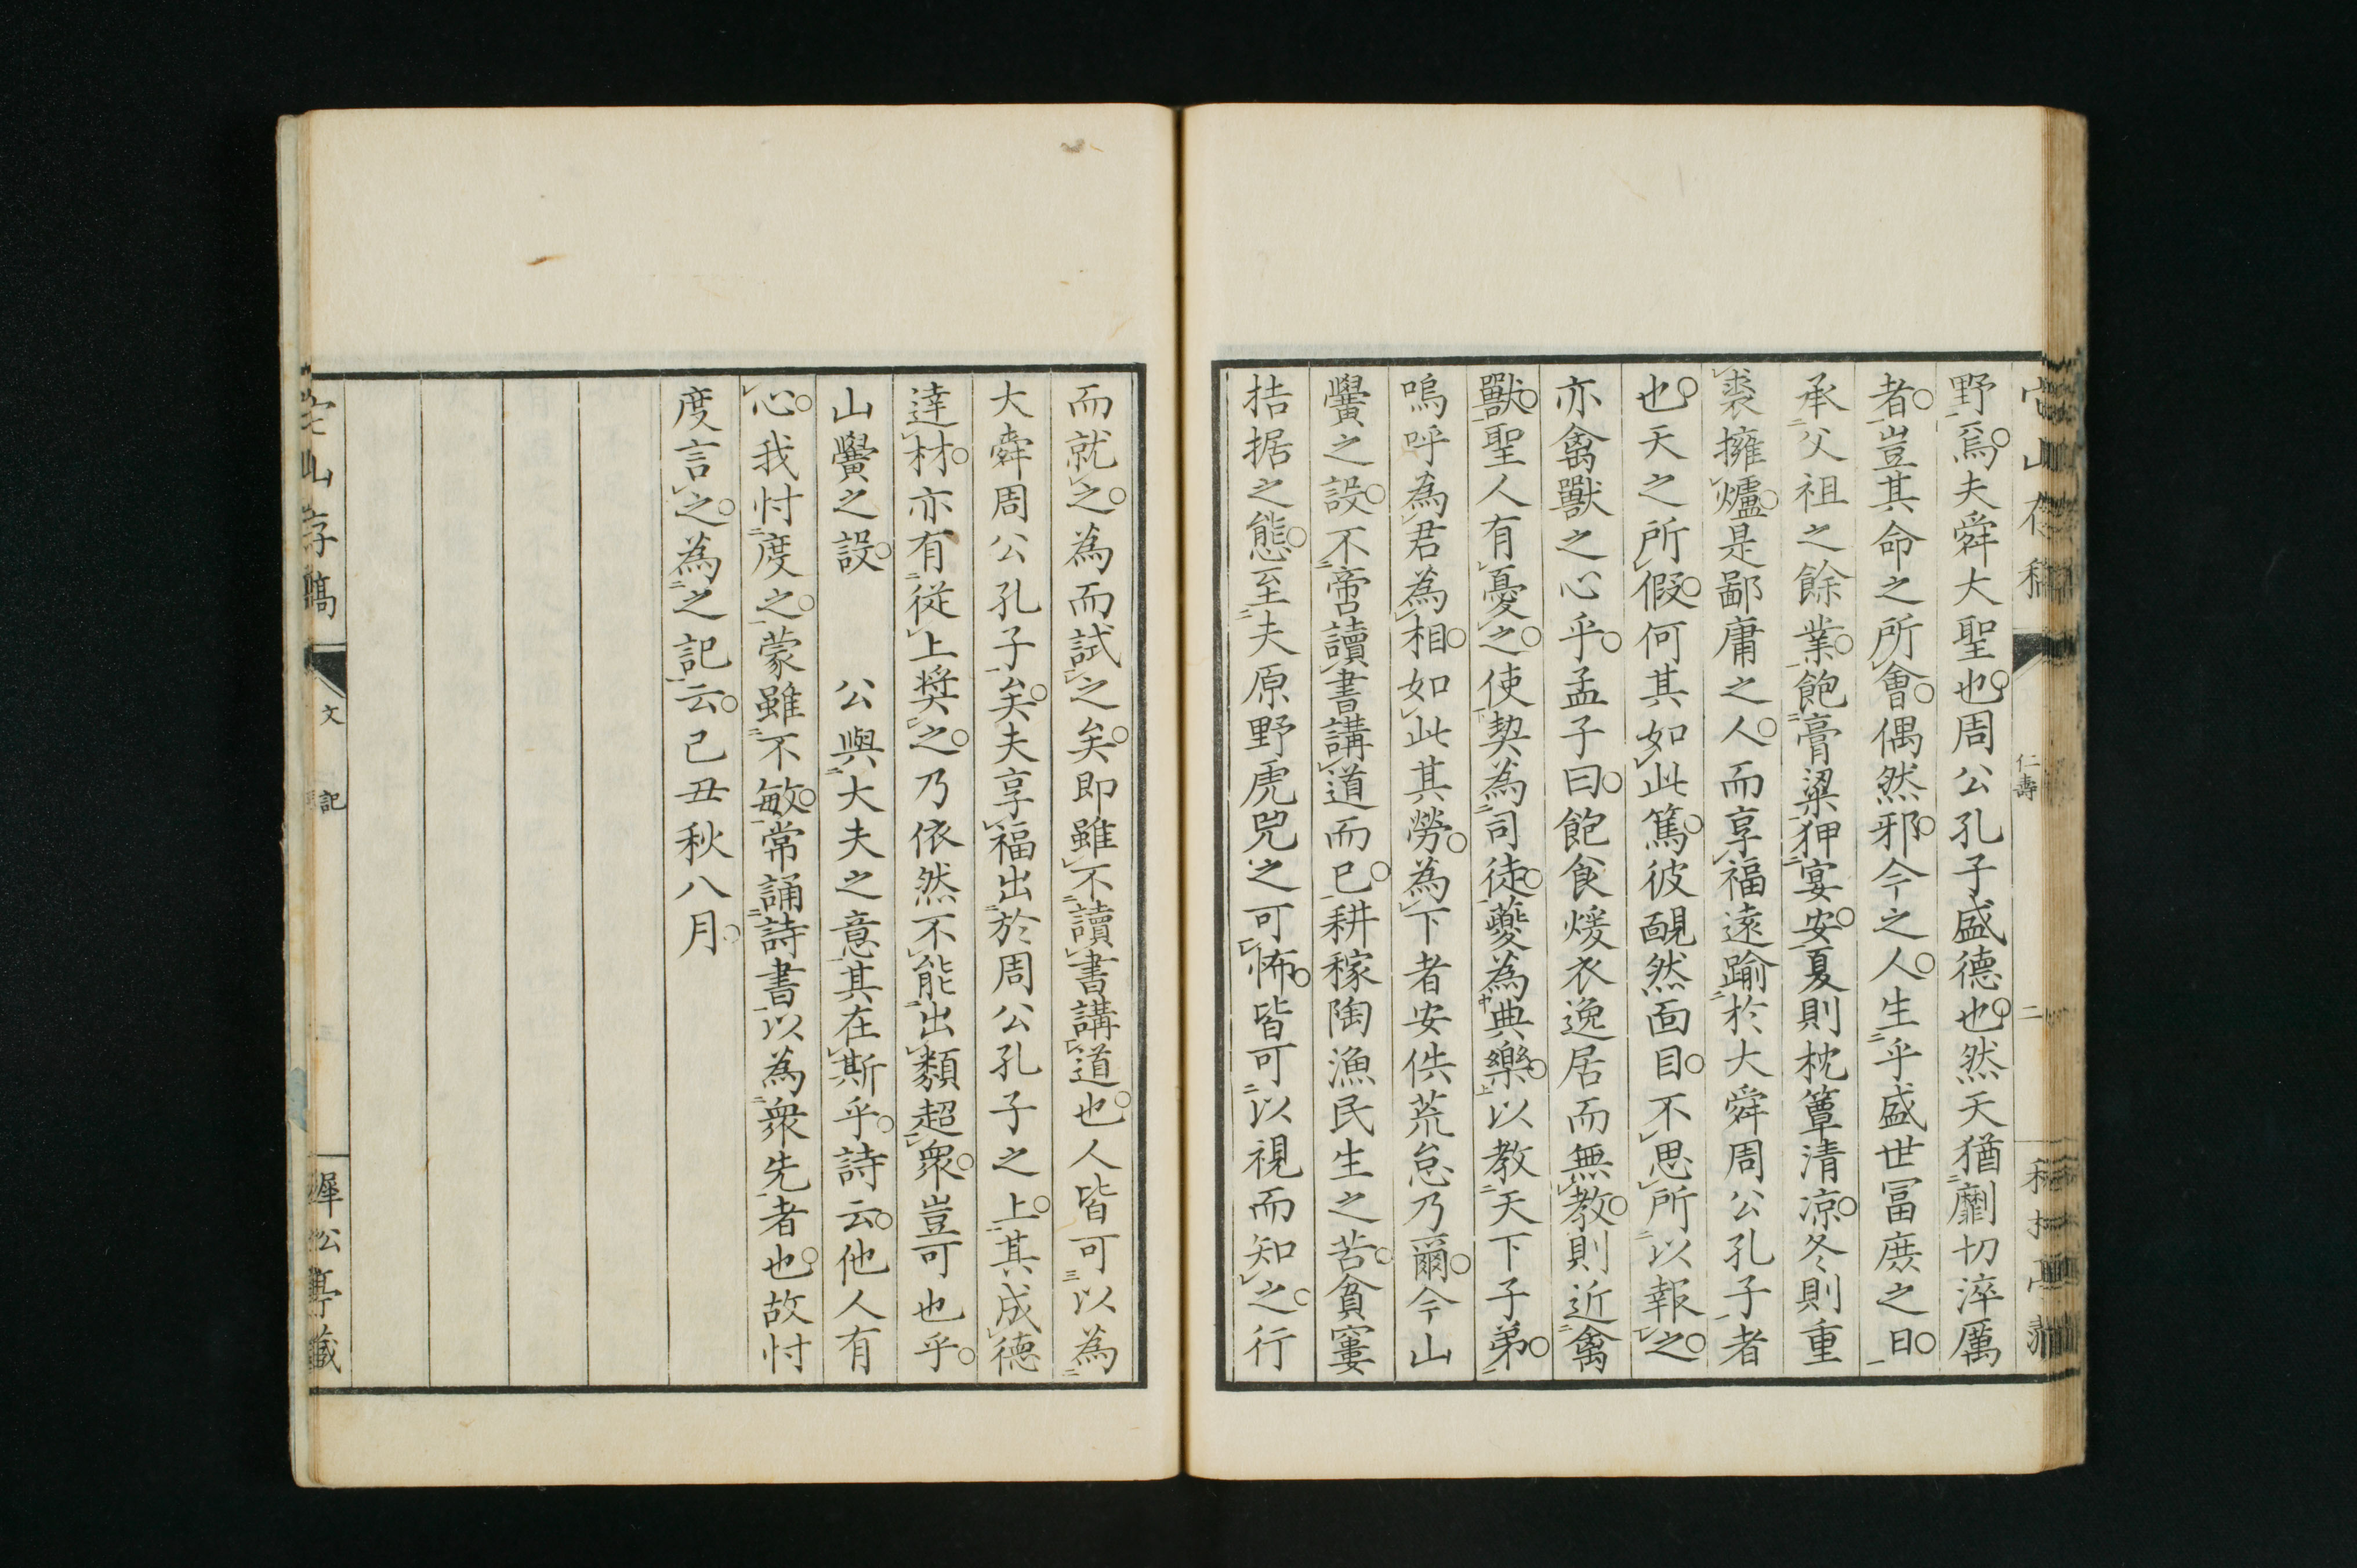 野焉。夫舜大聖也。周公孔子盛德也。然天猶劘切淬厲
者。豈其命之所會。偶然邪。今之人。生乎盛世冨庶之日。
承父祖之餘業。飽膏粱狎宴安。夏則枕簟清凉。冬則重
裘擁爐。是鄙庸之人。而享福遠踰於大舜周公孔子者
也。天之所假。何其如此篤。彼靦然面目。不思所以報之。
亦禽獸之心乎。孟子曰。飽食煖衣逸居而無教。則近禽
獸。聖人有憂之。使契為司徒。夔為典樂。以教天下子弟。
嗚呼為君為相。如此其勞。為下者安佚荒怠乃爾。今山
黌之設。不啻讀書講道而已。耕稼陶漁民生之苦。貧窶
拮据之態。至夫原野虎兕之可怖。皆可以視而知之。行
仁壽
二
而就之。為而試之矣。即雖不讀書講道也。人皆可以為
大舜周公孔子矣。夫享福出於周公孔子之上。其成德
達材。亦有從上奨之。乃依然不能出類超衆。豈可也乎。
山黌之設。公與大夫之意。其在斯乎。詩云。他人有
心。我忖度之。蒙雖不敏。常誦詩書。以為衆先者也。故忖
度言之。為之記云。己丑秋八月。
山存稿
文
記
犀松亭藏